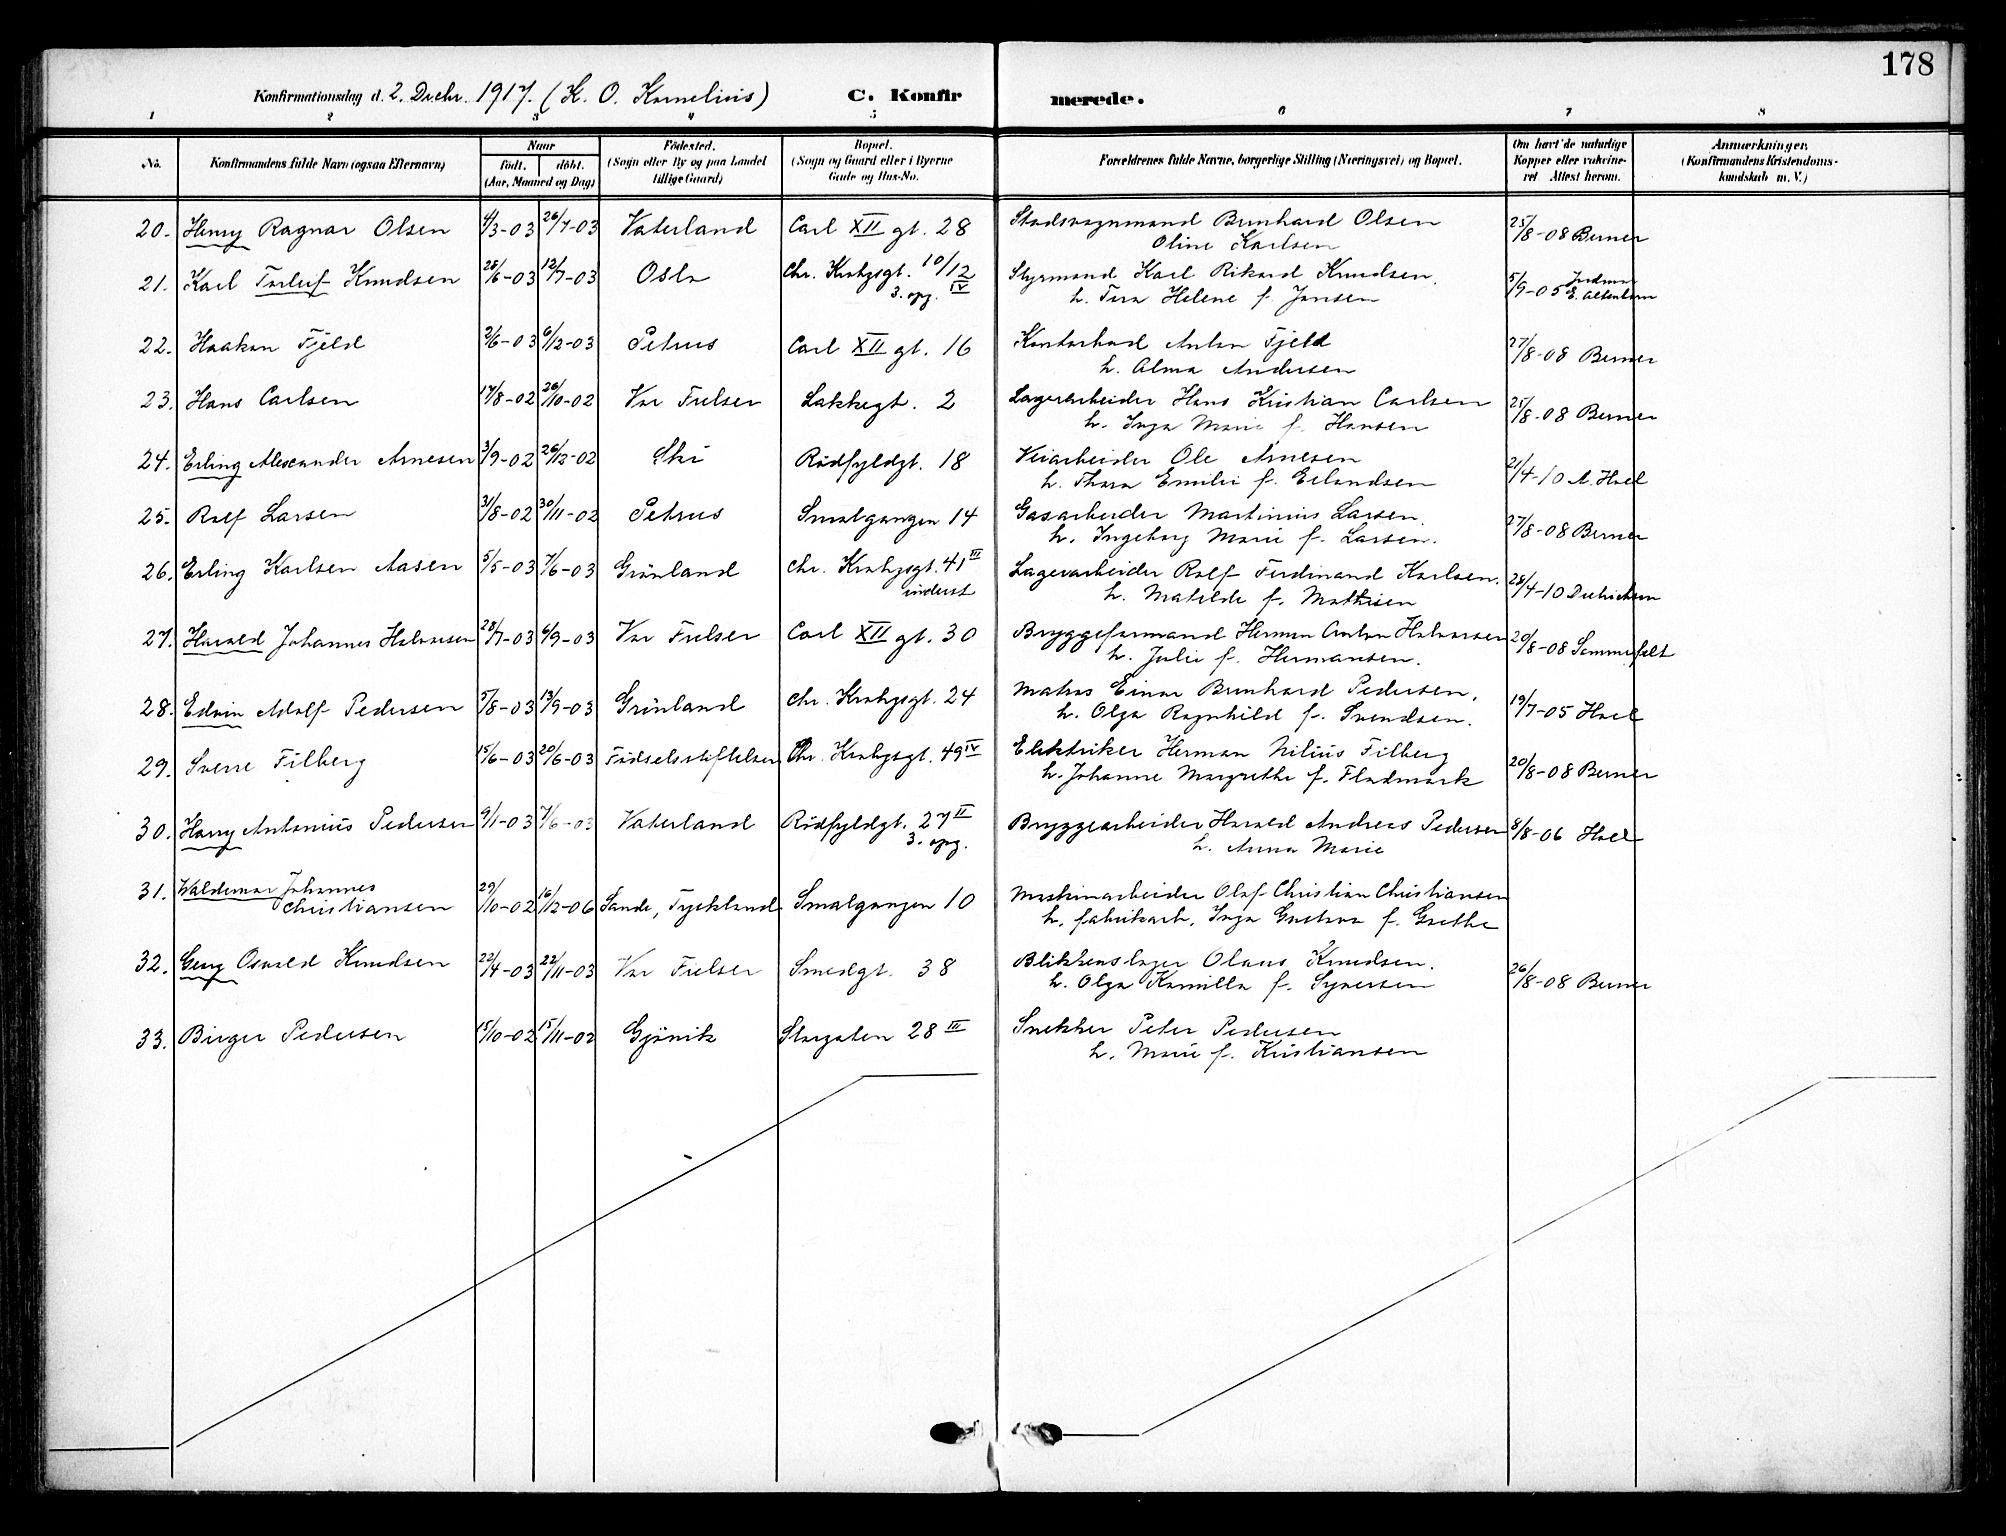 178
Konfirmationsdag d. 2. Decbr. 1917. (K. O. Kornelius) C. Konfirmerede.
1 2 3 4 5 6 7 8
No. Konfirmandens fulde Navn (ogsaa Efternavn) Naar født. døbt. (Aar, Maaned og Dag) Fødested. (Sogn eller By og paa Landet tillige Gaard) Bopæl. (Sogn og Gaard eller i Byerne Gade og Hus-No. Forældrenes fulde Navne, borgerlige Stilling (Næringsvei) og Bopæl. Om havt de naturlige Kopper eller vakcineret Attest herom. Anmærkninger. (Konfirmandens Kristendomskundskab m. V.)
20. Henry Ragnar Olsen 4/3-03 26/7-03 Vaterland Carl XII gt. 28 Stadsvognmand Bernhard Olsen 25/8-08 Berner
Oline Karlsen
21. Karl Torleif Knudsen 28/6-03 12/7-03 Oslo Chr. Krohgsgt. 10/12 Styrmand Karl Rikard Knudsen. 5/9-05
3. opg. IV h. Tira Helene f. Jansen
22. Haakon Fjeld 3/6-03 6/12-03 Petrus Carl XII gt. 16 Kontorbud Anton Fjeld 27/8-08 Berner
h. Alma Andersen
23. Hans Carlsen 17/8-02 26/10-02 Vor Frelser Lakkegt. 2 Lagerarbeider Hans Kristian Carlsen 25/8-08 Berner
h. Inga Marie f. Hansen
24. Erling Alexander Arnesen 3/9-02 26/12-02 Ski Rödfyldgt. 18 Veiarbeider Ole Arnesen 21/4-10 A. Hoel
h. Thora Emilie f. Erlandsen
25. Rolf Larsen 31/8-02 30/11-02 Petrus Smalgangen 14 Gasarbeider Martinius Larsen. 27/8-08 Berner
h. Ingeborg Marie f. Larsen.
26. Erling Karlsen Aasen 5/5-03 7/6-03 Grönland Chr. Krohgsgt. 41 III Lagerarbeider Rolf Ferdinand Karlsen. 28/4-10 Dietrichson
inderst h. Matilde f. Mathisen
27. Harald Johannes Halvorsen 28/7-03 6/9-03 Vor Frelser Carl XII gt. 30 Bryggeformand Herman Anton Halvorsen 20/8-08 Sommerfelt
h. Julie f. Hermansen.
28. Edvin Adolf Pedersen 5/8-03 13/9-03 Grönland Chr. Krohgsgt. 24 Matros Einar Bernhard Pedersen. 19/7-05 Hoel
h. Olga Ragnhild f. Svendsen.
29. Sverre Filberg 15/6-03 20/6-03 Födselsstiftelsen Chr. Krohgsgt. 49 IV Elektriker Herman Nilius Filberg 20/8-08 Berner
h. Johanne Margrethe f. Fladmark
30. Harry Antonius Pedersen 9/1-03 7/6-03 Vaterland Rödfyldgt. 27 II Bryggearbeider Harald Andreas Pedersen 8/8-06 Hoel
3. opg. h. Anna Marie
31. Waldemar Johannes 29/10-02 16/12-06 Sande, Tyskland Smalgangen 10 Maskinarbeider Olaf Christian Christiansen
Christiansen h. fabrikarb. Inga Gustava f. Grethe
32. Georg Osvald Knudsen 22/4-03 22/11-03 Vor Frelser Smedgt. 38 Blikkenslager Olaus Knudsen. 26/8-08 Berner
h. Olga Kamilla f. Syversen
33. Birger Pedersen 15/10-02 15/11-02 Gjövik Storgaten 28 III Snekker Peter Pedersen
h. Marie f. Kristiansen